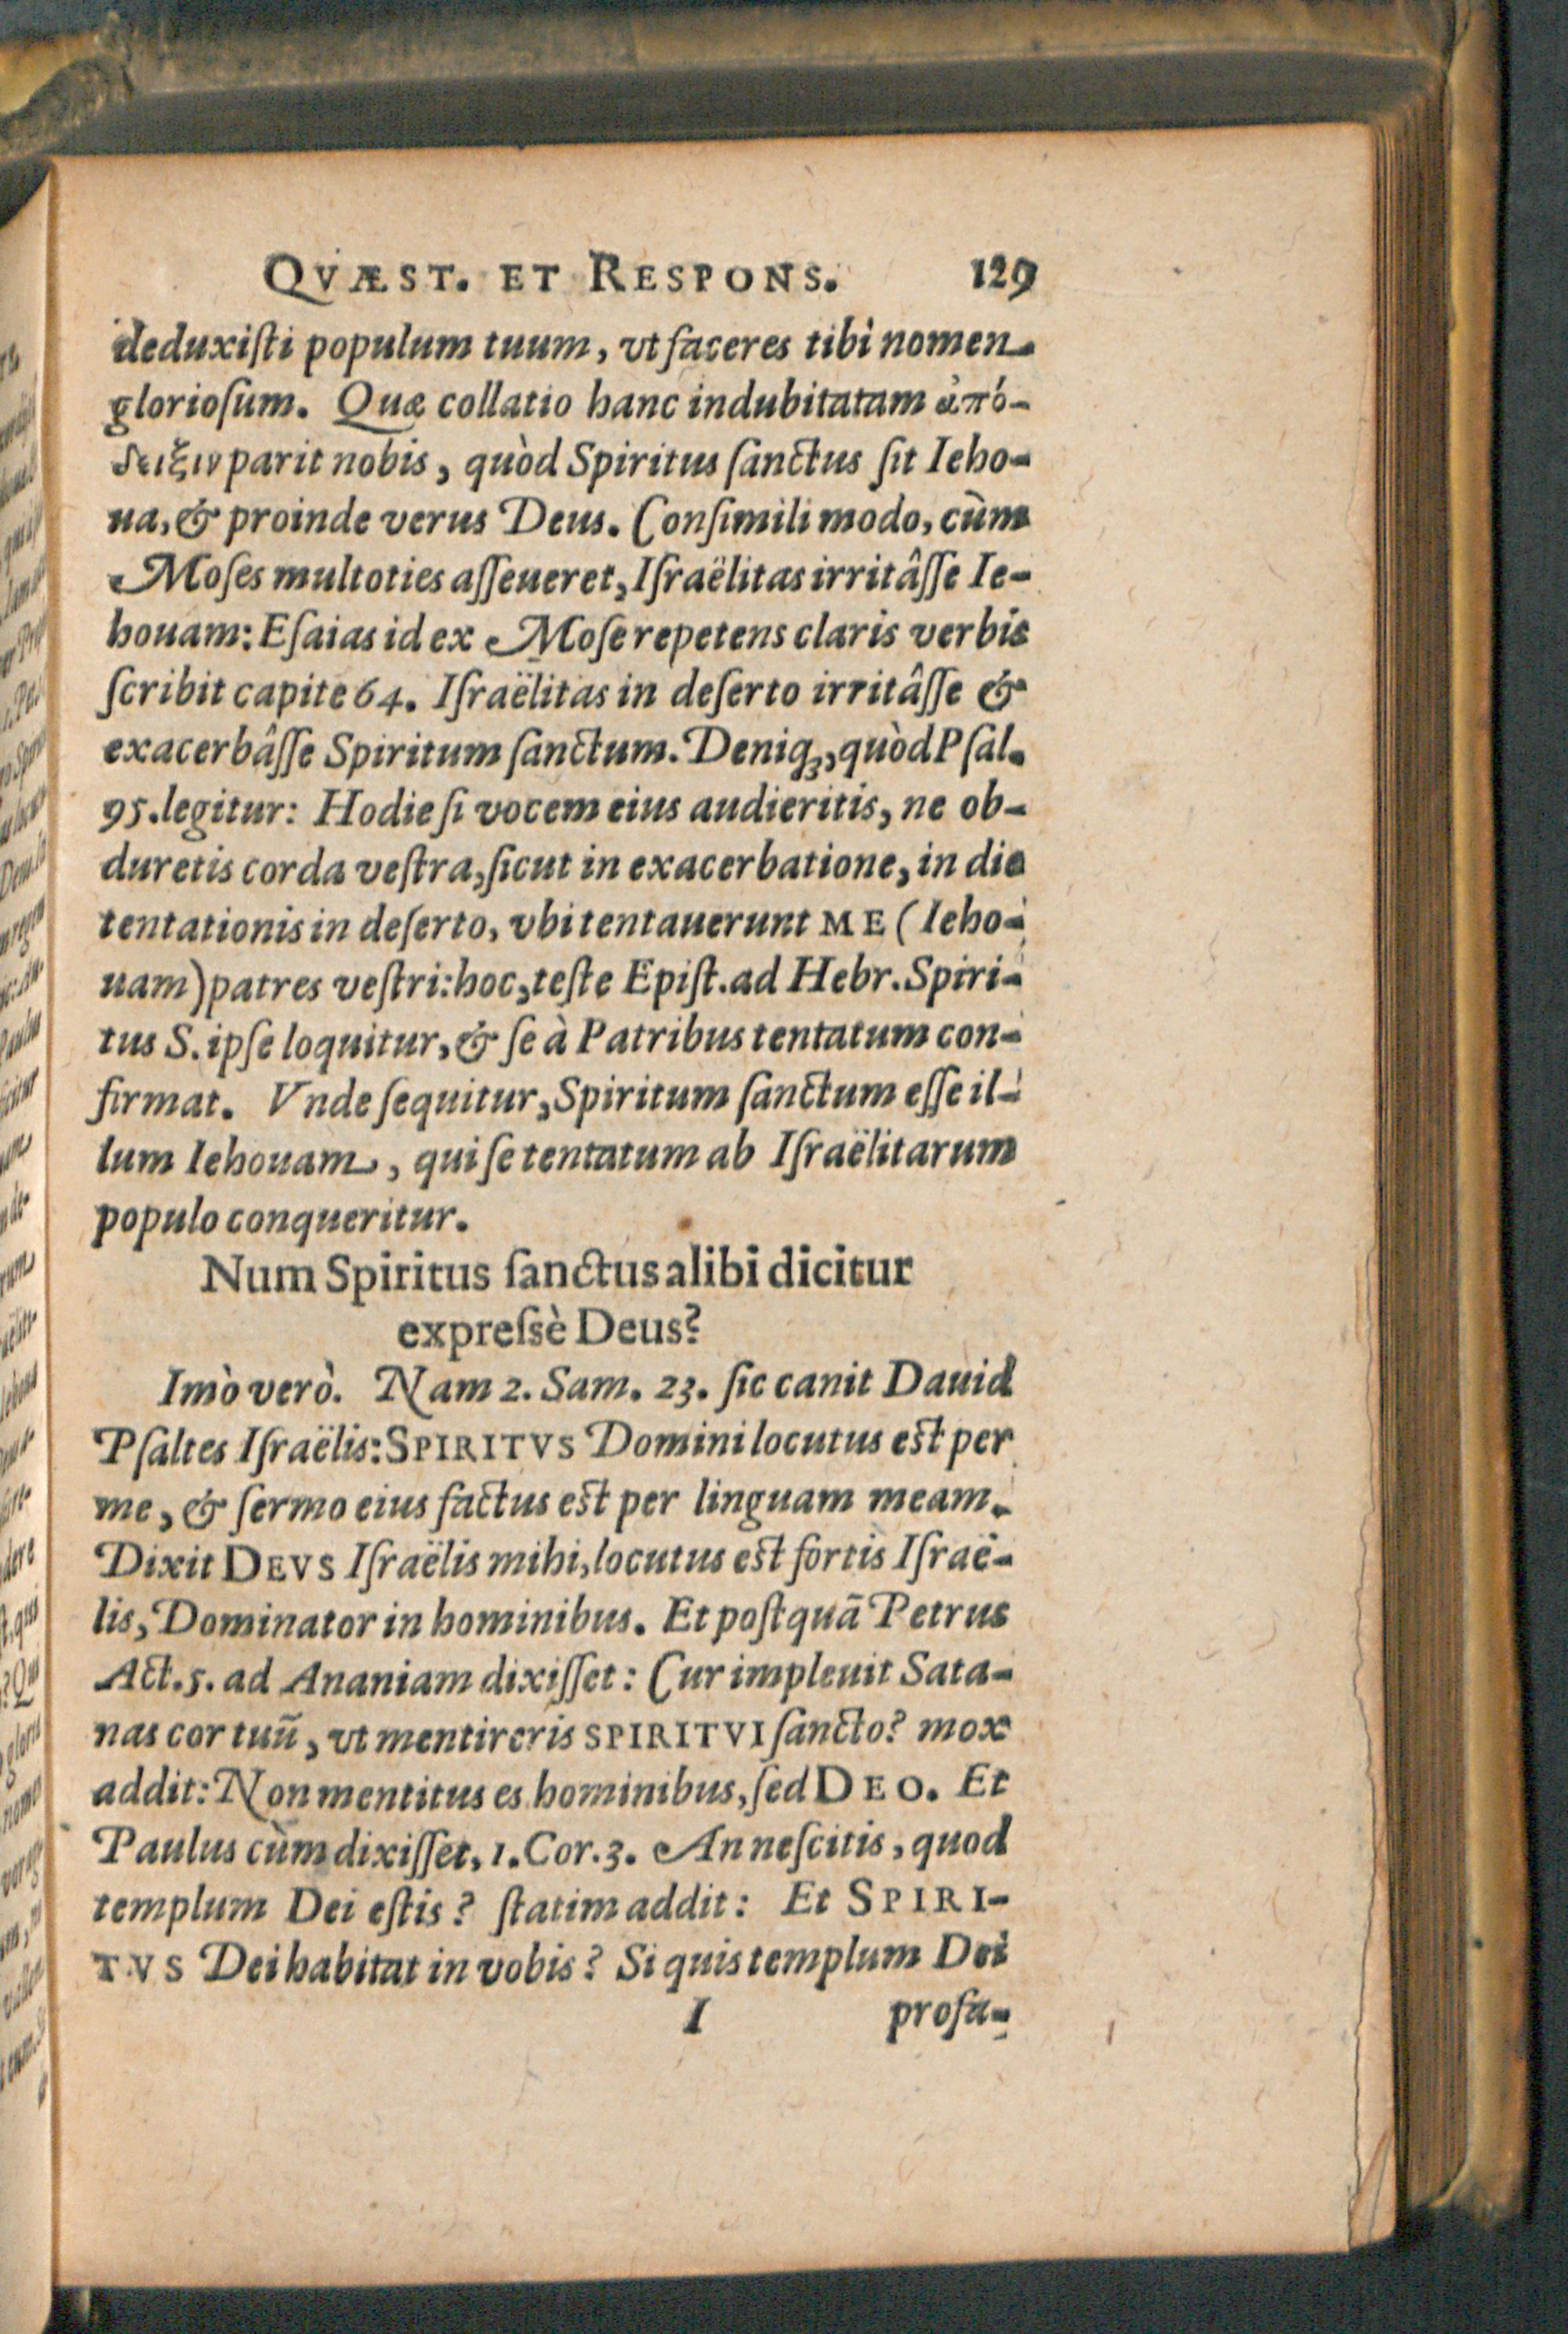 QVÆST. ET RESPONS. 129
deduxiſti populum tuum, vt faceres tibi nomen
glorioſum. Quæ collatio hanc indubitatam ἀπό-
δειξιν parit nobis, quòd Spiritus ſanctus ſit Ieho-
ua, & proinde verus Deus. Conſimili modo, cùm
Moſes multoties aſſeueret, Iſraëlitas irritâſſe Ie-
houam: Eſaias id ex Moſe repetens claris verbis
ſcribit capite 64. Iſraëlitas in deſerto irritâſſe &
exacerbâſſe Spiritum ſanctum. Deniq;, quòd Pſal.
95. legitur: Hodie ſi vocem eius audieritis, ne ob-
duretis corda veſtra, ſicut in exacerbatione, in die
tentationis in deſerto, vbi tentauerunt ME (Ieho-
uam) patres veſtri: hoc, teſte Epiſt. ad Hebr. Spiri-
tus S. ipſe loquitur, & ſe à Patribus tentatum con-
firmat. Vnde ſequitur, Spiritum ſanctum eſſe il-
lum Iehouam, qui ſe tentatum ab Iſraëlitarum
populo conqueritur.
Num Spiritus ſanctus alibi dicitur
expreſsè Deus?
Imò verò. Nam 2. Sam. 23. ſic canit Dauid
Pſaltes Iſraëlis: SPIRITVS Domini locutus eſt per
me, & ſermo eius factus eſt per linguam meam.
Dixit DEVS Iſraëlis mihi, locutus eſt fortis Iſraë-
lis, Dominator in hominibus. Et poſtquã Petrus
Act. 5. ad Ananiam dixiſſet: Cur impleuit Sata-
nas cor tuũ, vt mentireris SPIRITVI ſancto? mox
addit: Non mentitus es hominibus, ſed DEO. Et
Paulus cùm dixiſſet, 1. Cor. 3. An neſcitis, quod
templum Dei eſtis? ſtatim addit: Et SPIRI-
TVS Dei habitat in vobis? Si quis templum Dei
I profa-